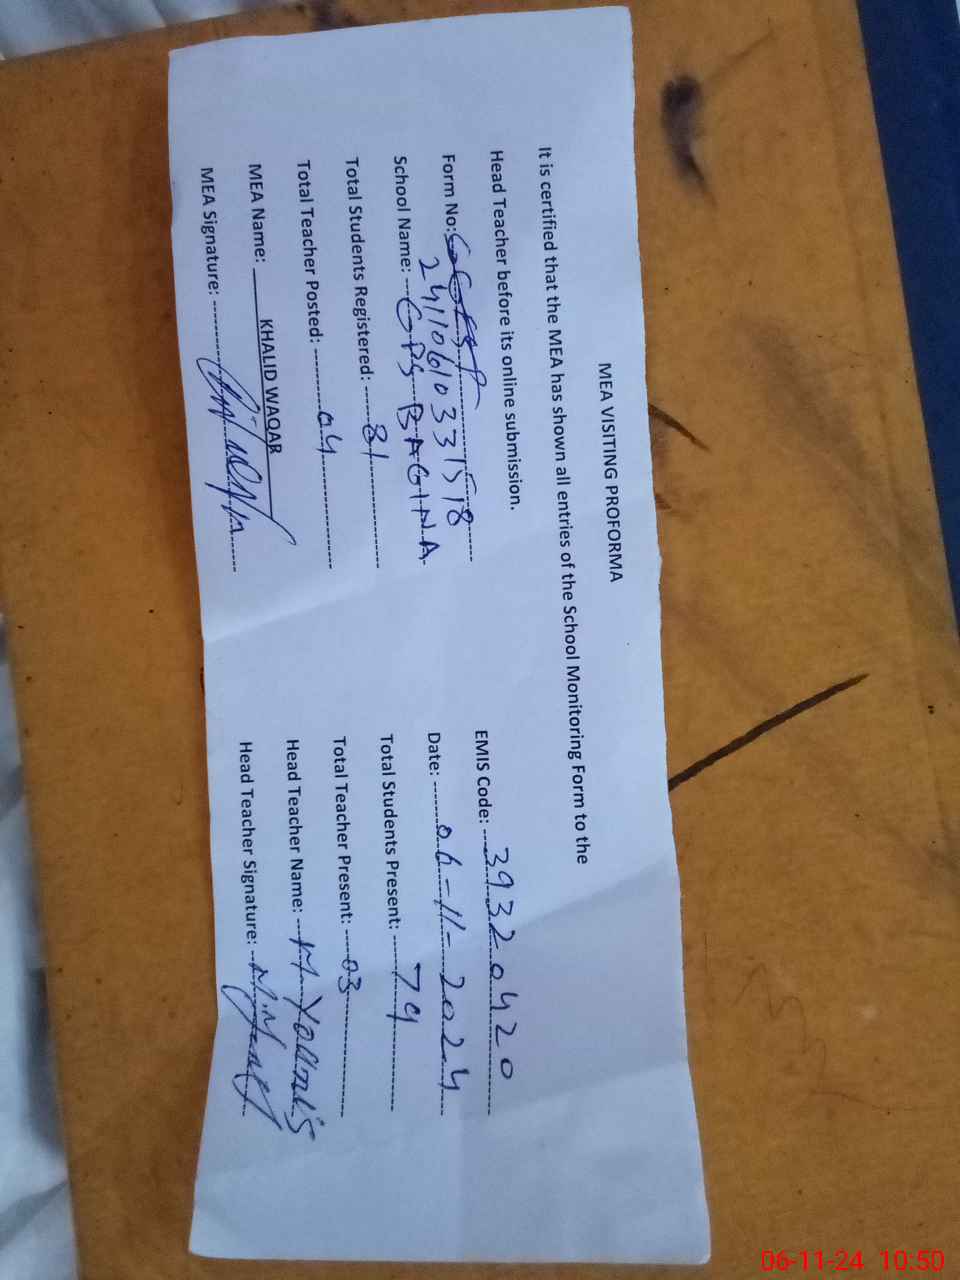 MEA VISITING PROFORMA
It is certified that the MEA has shown all entries of the School Monitoring Form to the
Head Teacher before its online submission.
Form No: 241106103331518
EMIS Code: 39320420
School Name: GPS BAGINA
Date: 06-11-2024
Total Students Registered: 81
Total Students Present: 79
Total Teacher Posted: 04
Total Teacher Present: 03
MEA Name: KHALID WAQAR
Head Teacher Name: M. Younis
MEA Signature:
Head Teacher Signature:
06-11-24 10:50